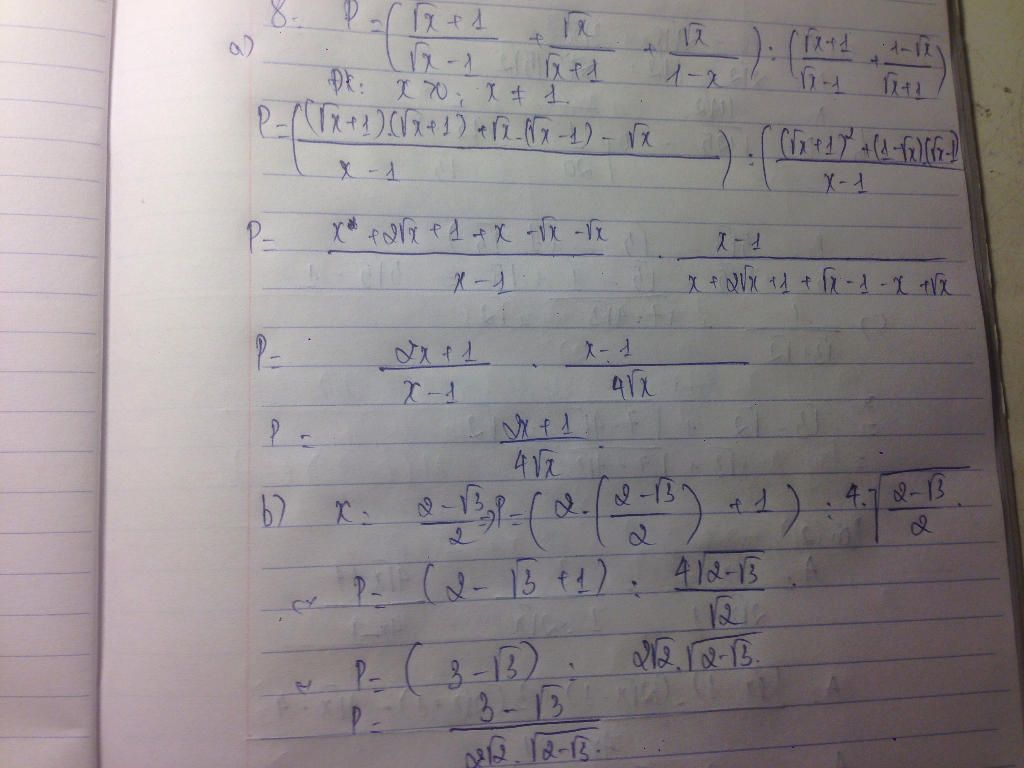 8. P = ( (√x + 1)/(√x - 1) + √x/(√x + 1) + √x/(1 - x) ) : ( (√x + 1)/(√x - 1) + (1 - √x)/(√x + 1) )
a)
ĐK: x > 0 ; x ≠ 1
P = ( ((√x + 1).(√x + 1) + √x.(√x - 1) - √x)/(x - 1) ) : ( ((√x + 1)² + (1 - √x)(√x - 1))/(x - 1)
P = (x + 2√x + 1 + x - √x - √x)/(x - 1) . (x - 1)/(x + 2√x + 1 + √x - 1 - x + √x)
P = (2x + 1)/(x - 1) . (x - 1)/(4√x)
P = (2x + 1)/(4√x) .
b) x = (2 - √3)/2 ⇒ P = ( 2 . ( (2 - √3)/2 ) + 1 ) : 4 . √((2 - √3)/2) .
~ P = (2 - √3 + 1) : (4√(2 - √3))/√2 .
~ P = ( 3 - √3 ) : 2√2 . √(2 - √3) .
P = (3 - √3)/(2√2 . √(2 - √3)) .